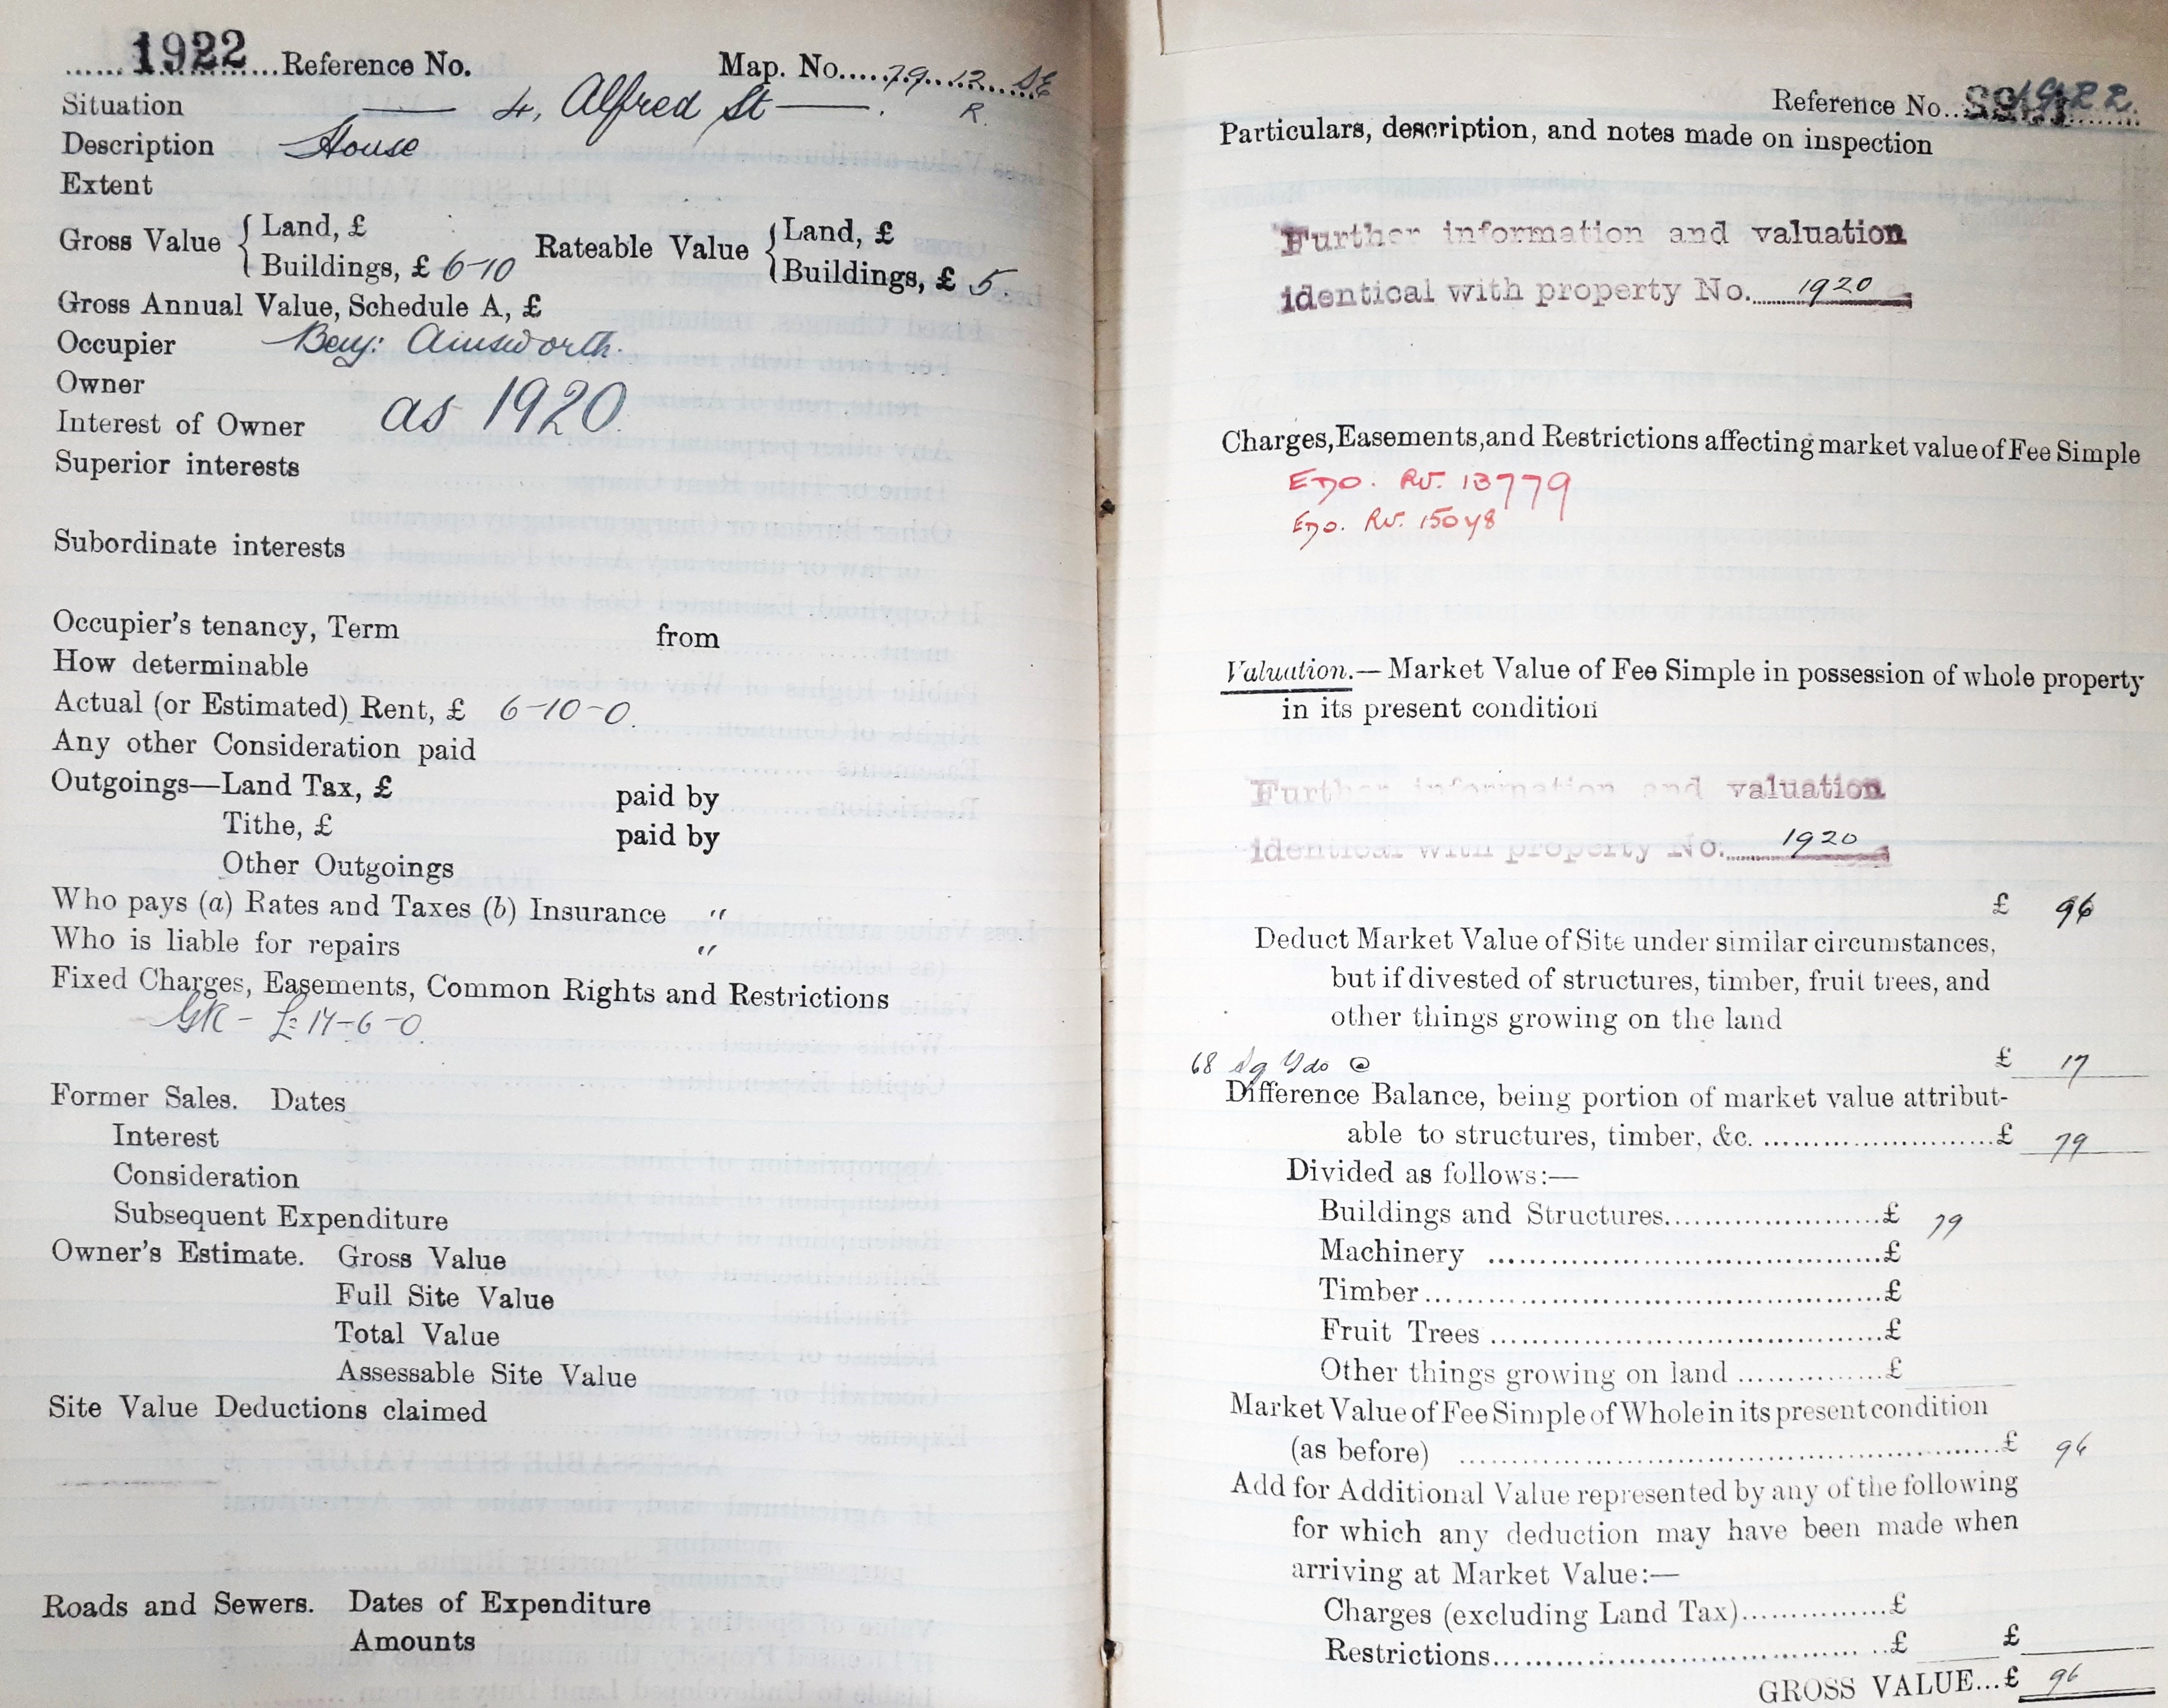 1922 Reference No. Map. No. 79.12 SE
Situation 4, Alfred St R.
Description House
Extent
Gross Value { Land, £ Rateable Value { Land, £
Buildings, £ 6-10 Buildings, £ 5
Gross Annual Value, Schedule A, £
Occupier Benj: Ainsworth.
Owner
as 1920.
Interest of Owner
Superior interests
Subordinate interests
Occupier's tenancy, Term from
How determinable
Actual (or Estimated) Rent, £ 6-10-0.
Any other Consideration paid
Outgoings—Land Tax, £ paid by
Tithe, £ paid by
Other Outgoings
Who pays (a) Rates and Taxes (b) Insurance "
Who is liable for repairs "
Fixed Charges, Easements, Common Rights and Restrictions
Former Sales. Dates
Interest
Consideration
Subsequent Expenditure
Owner's Estimate. Gross Value
Full Site Value
Total Value
Assessable Site Value
Site Value Deductions claimed
Roads and Sewers. Dates of Expenditure
Amounts
Reference No.
Particulars, description, and notes made on inspection
Further information and valuation
identical with property No. 1920
Charges, Easements, and Restrictions affecting market value of Fee Simple
13779
Valuation.—Market Value of Fee Simple in possession of whole property
in its present condition
Further information and valuation
identical with property No. 1920
£ 96
Deduct Market Value of Site under similar circumstances,
but if divested of structures, timber, fruit trees, and
other things growing on the land
68 Sq Yds @ £ 17
Difference Balance, being portion of market value attribut-
able to structures, timber, &c. £ 79
Divided as follows:—
Buildings and Structures £ 79
Machinery £
Timber £
Fruit Trees £
Other things growing on land £
Market Value of Fee Simple of Whole in its present condition
(as before) £ 96
Add for Additional Value represented by any of the following
for which any deduction may have been made when
arriving at Market Value:—
Charges (excluding Land Tax) £
Restrictions £ £
GROSS VALUE...£ 96